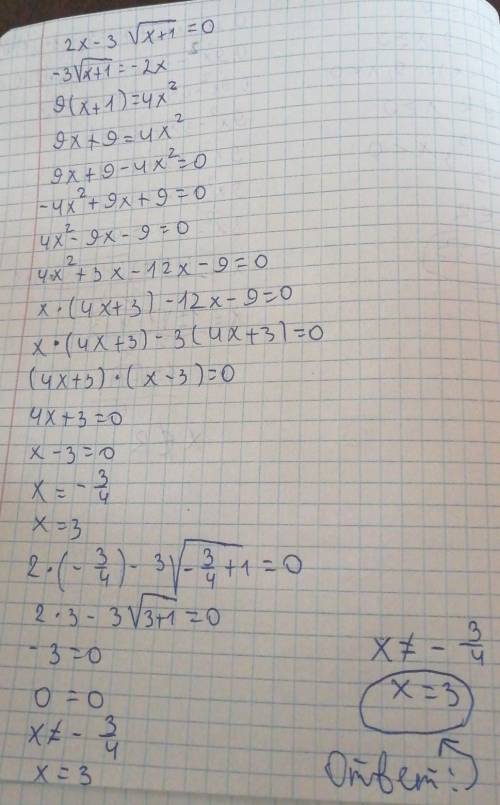 2x - 3 √(x+1) = 0
-3√(x+1) = -2x
9(x+1) = 4x²
9x + 9 = 4x²
9x + 9 - 4x² = 0
-4x² + 9x + 9 = 0
4x² - 9x - 9 = 0
4x² + 3x - 12x - 9 = 0
x · (4x+3) - 12x - 9 = 0
x · (4x+3) - 3(4x+3) = 0
(4x+3) · (x-3) = 0
4x+3 = 0
x - 3 = 0
x = - 3/4
x = 3
2 · (- 3/4) - 3√(- 3/4 + 1) = 0
2 · 3 - 3√(3+1) = 0
-3 = 0
0 = 0
x ≠ - 3/4
x = 3
x ≠ - 3/4
x = 3
Ответ: